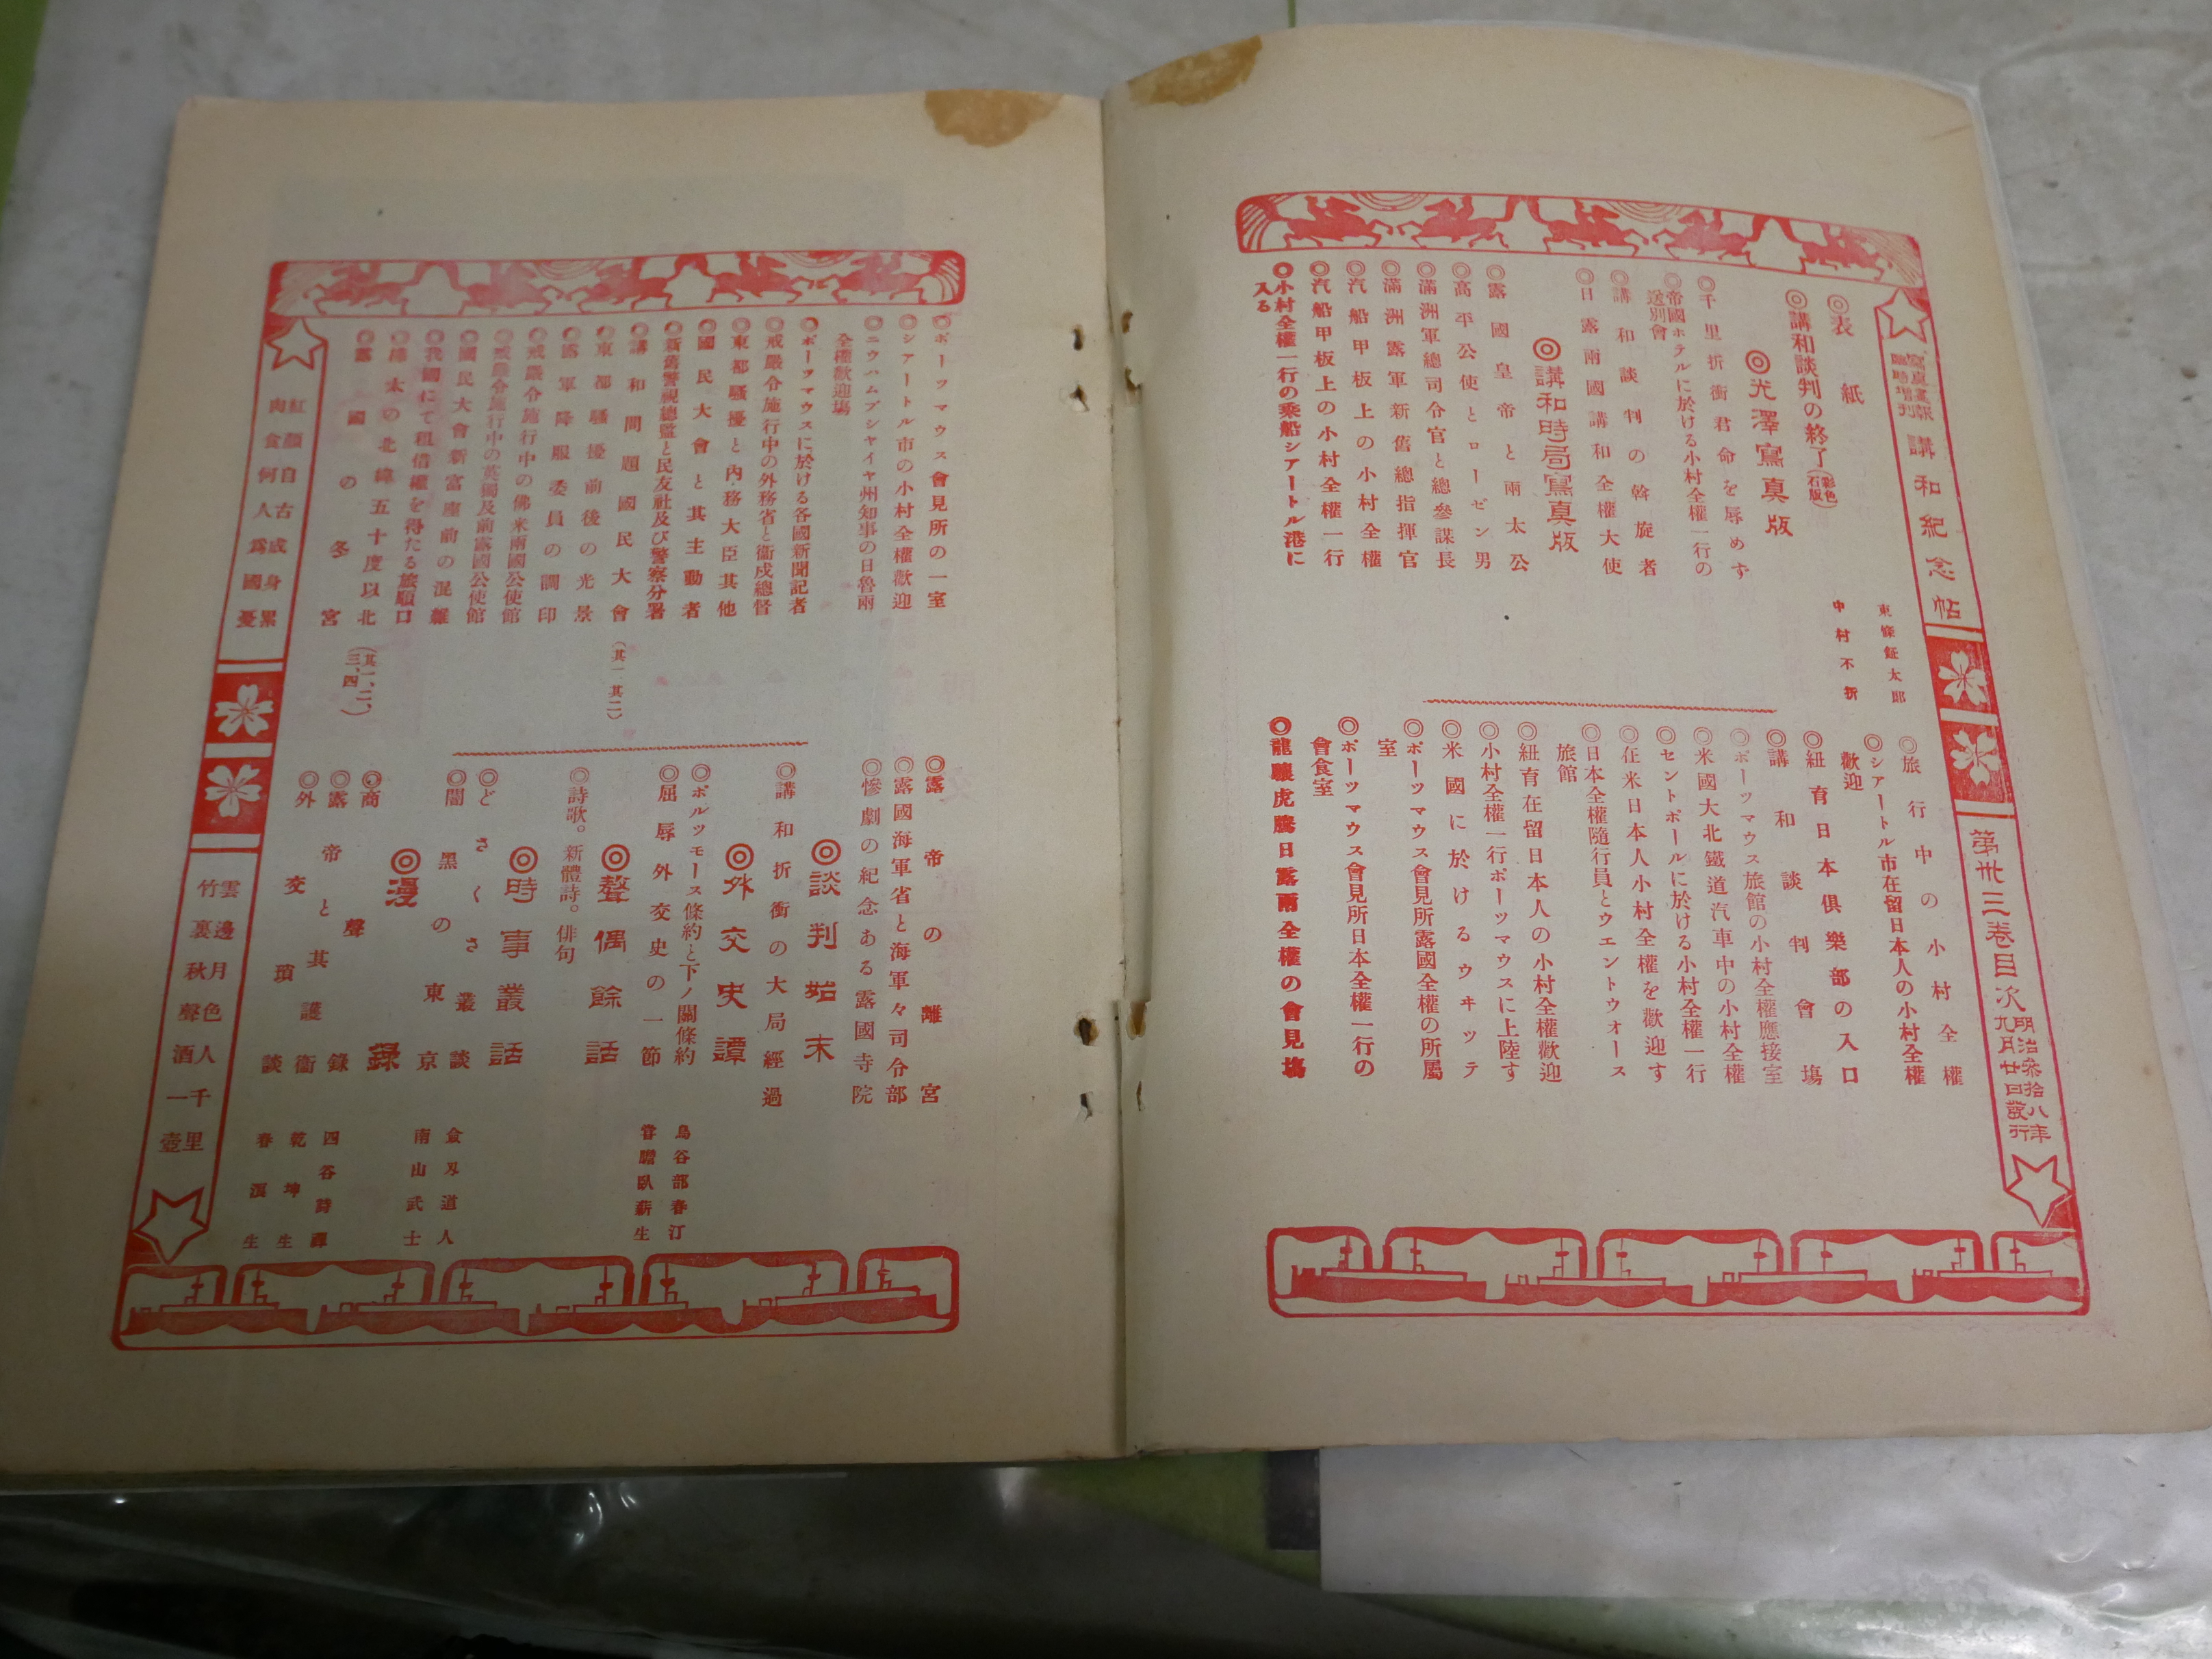 臨時増刊
講和紀念帖
第卅三卷目次
明治參拾八年
九月廿日發行
◎表紙
東條鉦太郎
◎講和談判の終了(彩色石版)
中村不折
◎光澤寫眞版
◎千里折衝君命を辱めず
◎帝國ホテルに於ける小村全權一行の
送別會
◎講和談判の斡旋者
◎日露兩國講和全權大使
◎講和時局寫眞版
◎露國皇帝と兩太公
◎高平公使とローゼン男
◎滿洲軍總司令官と總參謀長
◎滿洲露軍新舊總指揮官
◎汽船甲板上の小村全權
◎汽船甲板上の小村全權一行
◎小村全權一行の乘船シアートル港に
入る
◎旅行中の小村全權
◎シアートル市在留日本人の小村全權
歡迎
◎紐育日本俱樂部の入口
◎講和談判會場
◎ポーツマウス旅館の小村全權應接室
◎米國大北鐵道汽車中の小村全權
◎セントポールに於ける小村全權一行
◎在米日本人小村全權を歡迎す
◎日本全權隨行員とウエントウオース
旅館
◎紐育在留日本人の小村全權歡迎
◎小村全權一行ポーツマウスに上陸す
◎米國に於けるウヰッテ
◎ポーツマウス會見所露國全權の所屬
室
◎ポーツマウス會見所日本全權一行の
會食室
◎龍驤虎騰日露兩全權の會見塲
◎ポーツマウス會見所の一室
◎シアートル市の小村全權歡迎
◎ニウハムプシヤイヤ州知事の日魯兩
全權歡迎塲
◎ポーツマウスに於ける各國新聞記者
◎戒嚴令施行中の外務省と衞戍總督
◎東都騷擾と內務大臣其他
◎國民大會と其主動者
◎新舊警視總監と民友社及び警察分署
◎講和問題國民大會(其一其二)
◎東都騷擾前後の光景
◎露軍降服委員の調印
◎戒嚴令施行中の佛米兩國公使館
◎戒嚴令施行中の英獨及前露國公使館
◎國民大會新富座前の混雜
◎我國にて租借權を得たる旅順口
◎樺太の北緯五十度以北
◎露國の冬宮(其一、二、三、四、)
◎露帝の離宮
◎露國海軍省と海軍々司令部
◎慘劇の紀念ある露國寺院
◎談判始末
◎講和折衝の大局經過
◎外交史譚
◎ポルツモース條約と下ノ關條約
鳥谷部春汀
◎屈辱外交史の一節
甞膽臥薪生
◎聱偶餘話
◎詩歌。新體詩。俳句
◎時事叢話
◎どさくさ叢談
兪刄道人
◎闇黑の東京
南山武士
◎漫錄
◎商聲錄
四谷詩禪
◎露帝と其護衞
乾坤生
◎外交瑣談
春濵生
紅顏自古成身累
肉食何人爲國憂
雲邊月色人千里
竹裏秋聲酒一壺